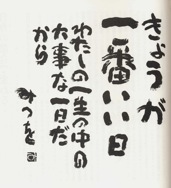 きょうが
一番いい日
わたしの一生の中の
大事な一日だ
から
みつを